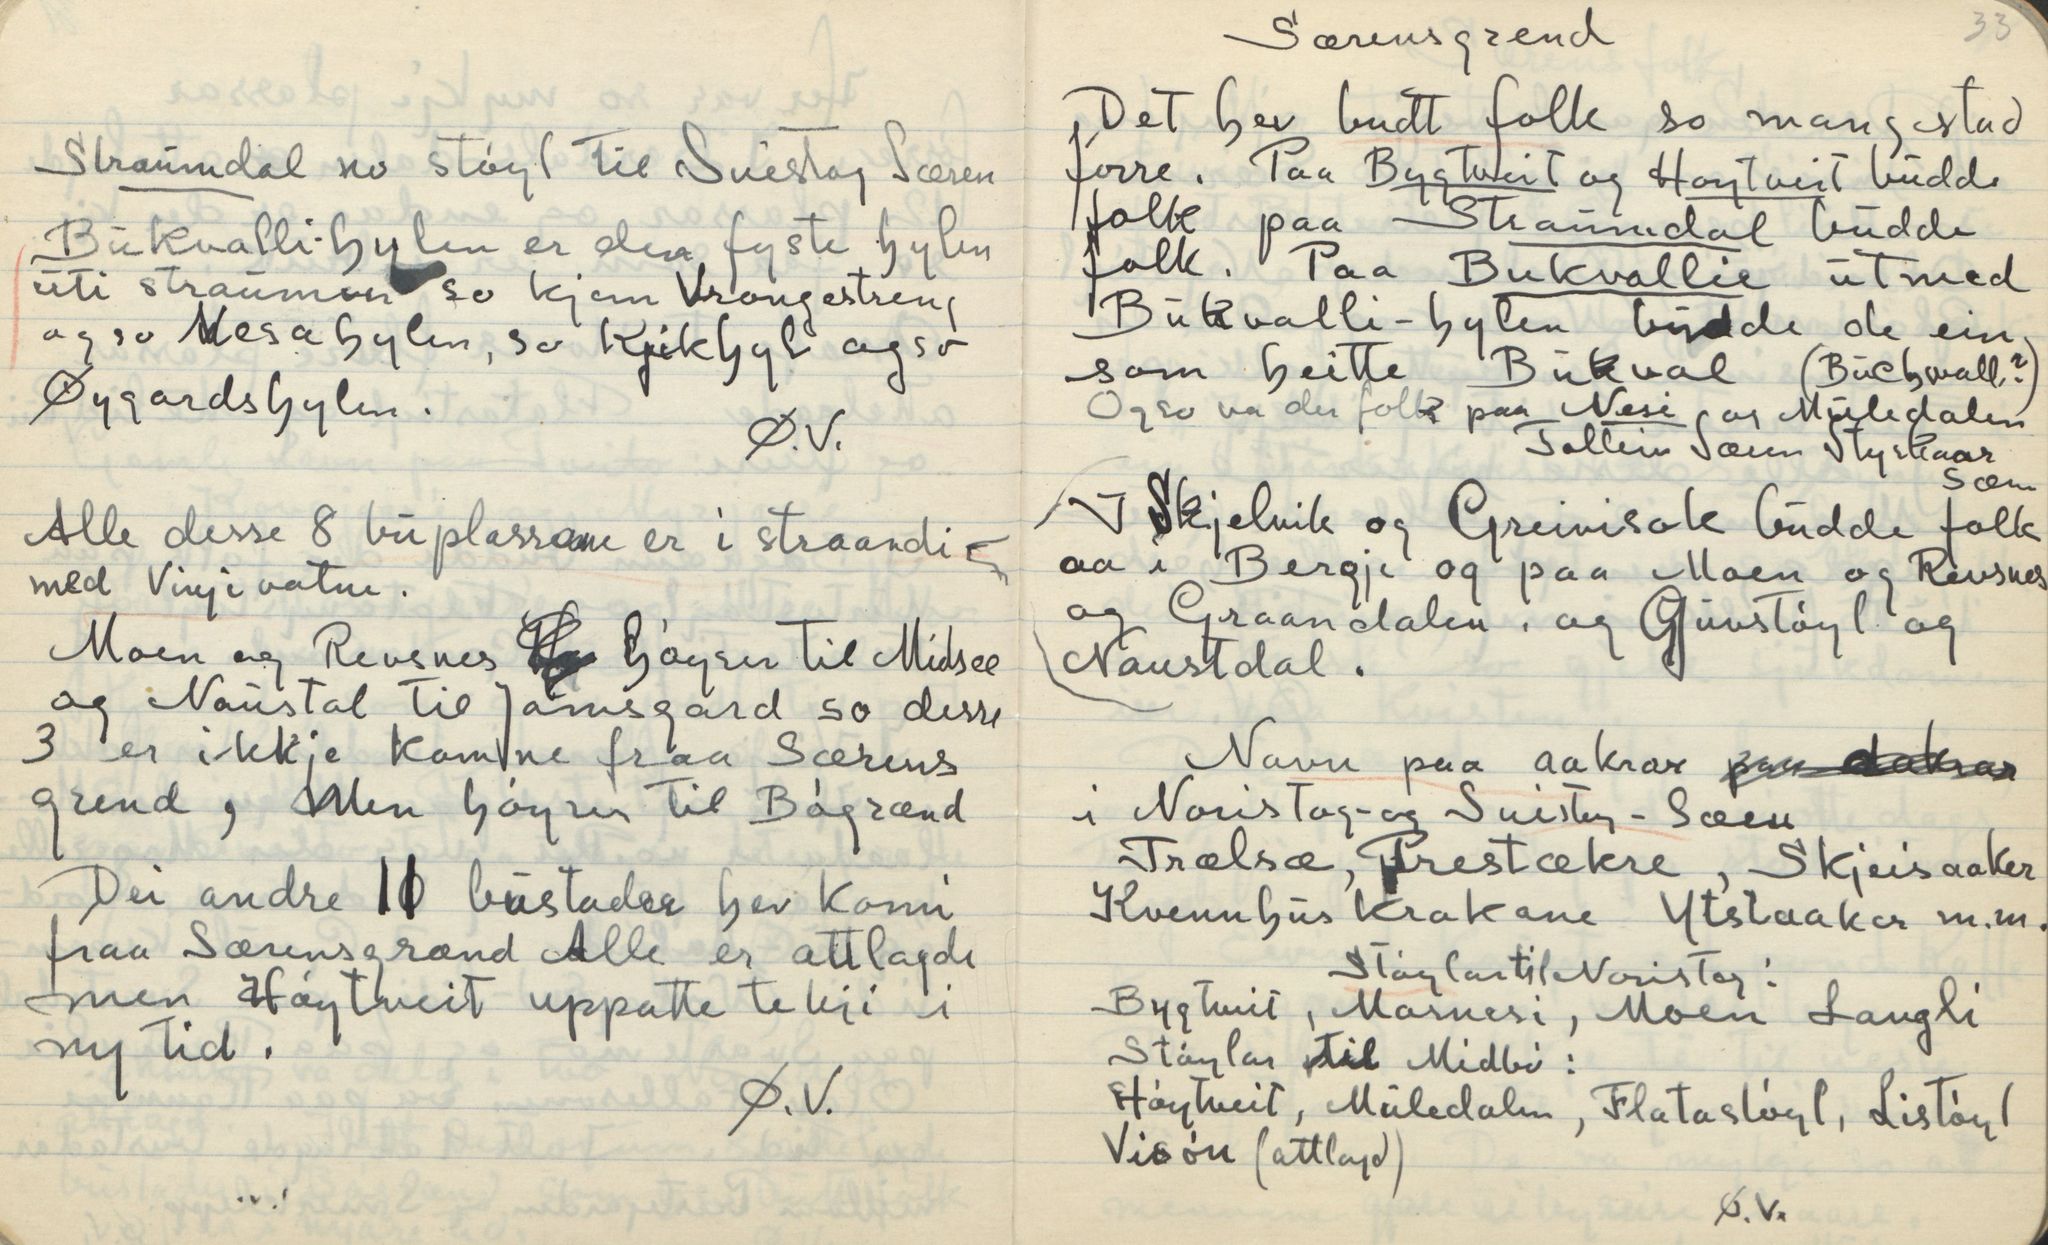 Straumdal no støyl til Suistog Særen
Bukvalli-hylen er den fyste hylen
uti straumen so kjem Vrangestreng
og so Nesahylen, so Kjikhyl og so
Øygardshylen.
Ø.V.
Alle desse 8 buplassane er i straandi
med Vinjevatne.
Moen og Revsnes høyrer til Midsæ
og Naustal til Jamsgard so desse
3 er ikkje komne fraa Særens
grend, Men høyrer til Bøgrænd
Dei andre 11 bustader hev komi
fraa Særensgrænd Alle er attlagde
men Høytveit uppatte tekji i
ny tid.
Ø.V.
33
Særensgrend
Det hev butt folk so mangestad
førre. Paa Bygtveit og Høytveit budde
folk paa Straumdal budde
folk. Paa Bukvallie utmed
Bukvalli-hylen budde de ein
som heitte Bukval (Buchwall?)
Ogso va der folk paa Nesi og Muledalen
Tallein Særen Styskaar
Særn
I Skjelvik og Greivisok budde folk
aa i Bergji og paa Moen og Revsnes
og Graandalen. og Gjuvstøyl og
Naustdal.
Navn paa aakrar paa aakrar
i Noristog- og Suistog-Særn
Trælsæ, Prestækre, Skjeisaaker
Kvennhuskrakane Ytstaaker m.m.
Støylar til Noristog:
Bygtveit, Masnesi, Moen Langli
Støylar til Midbø:
Høytveit, Muledalen, Flatastøyl, Listøyl
Visøn (attlagd)
Ø.V.